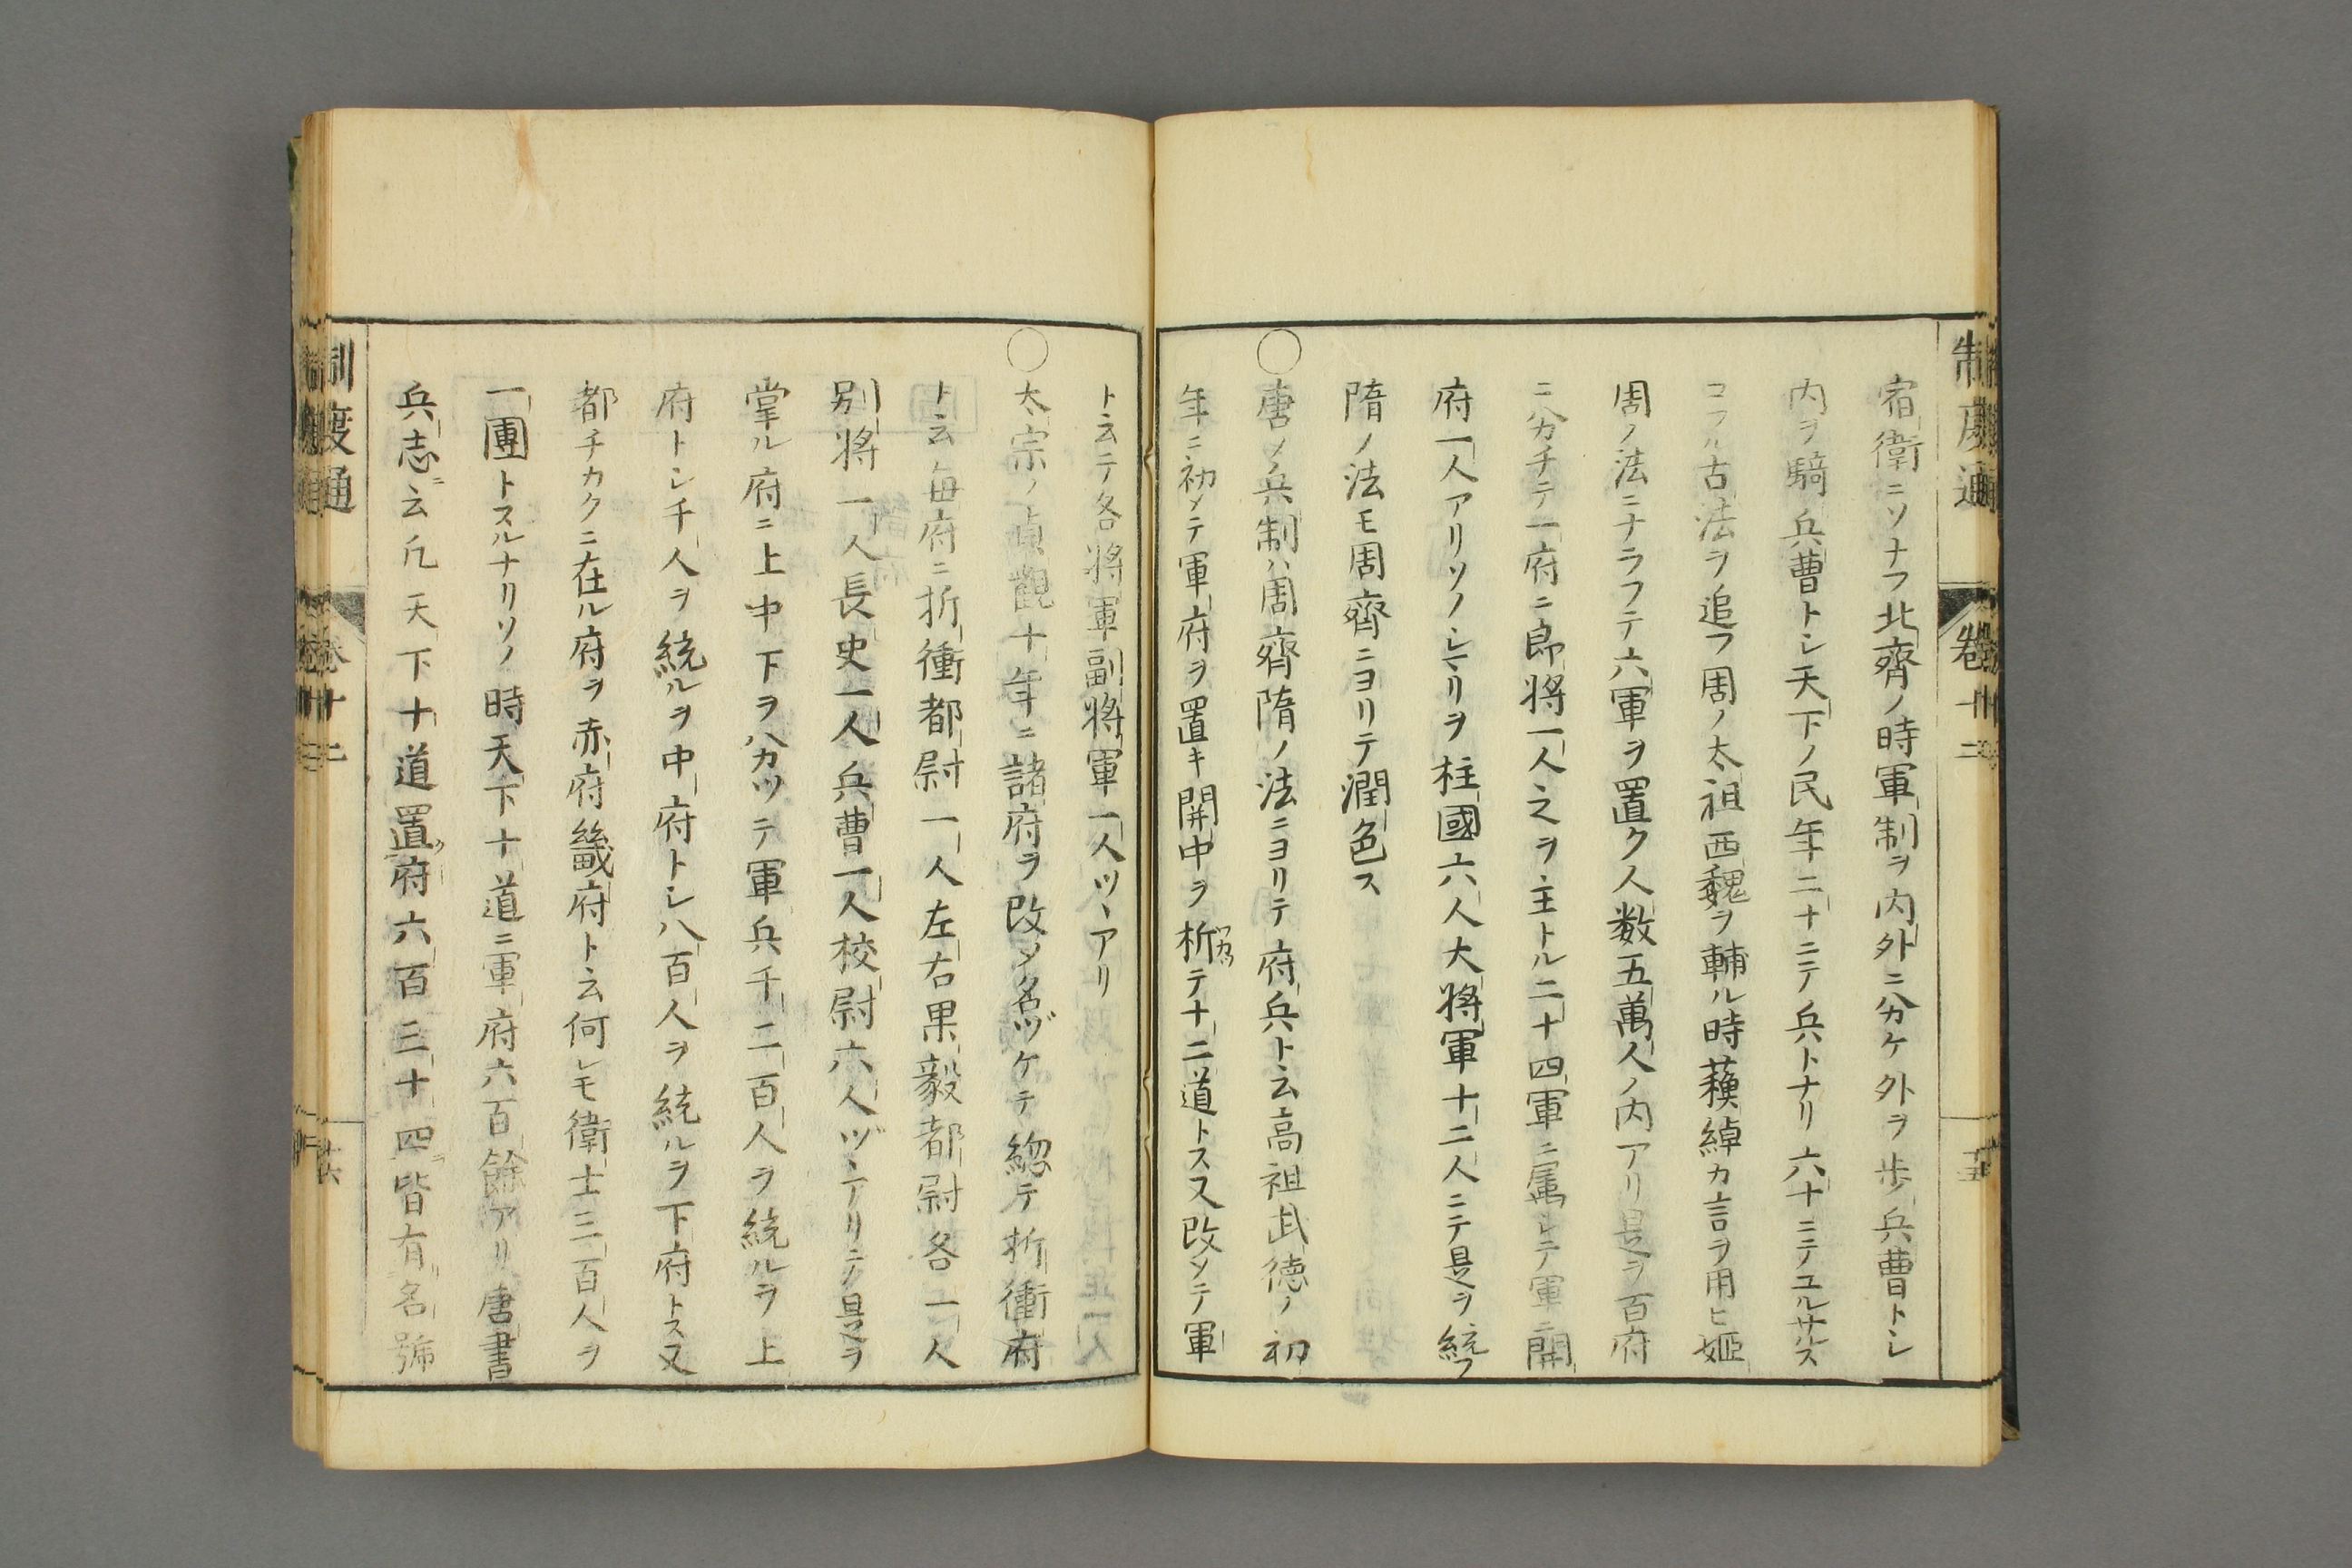 制度通 卷十二 十五
宿衛ニソナフ北齊ノ時軍制ヲ内外ニ分ケ外ヲ歩兵曹トシ
内ヲ騎兵曹トシ天下ノ民年二十ニテ兵トナリ六十ニテユルサルス
コフル古法ヲ追フ周ノ太祖西魏ヲ輔ル時蘓綽カ言ヲ用ヒ姬
周ノ法ニナラフテ六軍ヲ置ク人数五萬人ノ内アリ是ヲ百府
ニ分チテ一府ニ郎將一人之ヲ主トル二十四軍ニ属シテ軍ニ開
府一人アリソノシマリヲ柱國六人大將軍十二人ニテ是ヲ統フ
隋ノ法モ周齊ニヨリテ潤色ス
○唐ノ兵制ハ周齊隋ノ法ニヨリテ府兵ト云高祖武徳ノ初
年ニ初メテ軍府ヲ置キ開中ヲ析テ十二道トス又改メテ軍
ト云テ各將軍副將軍一人ツヽアリ
○太宗ノ貞觀十年ニ諸府ヲ改メ名ヅケテ緫テ折衝府
ト云毎府ニ折衝都尉一人左右果毅都尉各一人
別將一人長史一人兵曹一人校尉六人ヅヽアリテ是ヲ
掌ル府ニ上中下ヲハカツテ軍兵千二百人ヲ統ルヲ上
府トシ千人ヲ統ルヲ中府トシ八百人ヲ統ルヲ下府トス又
都チカクニ在ル府ヲ赤府畿府ト云何レモ衛士三百人ヲ
一團トスルナリソノ時天下十道ニ軍府六百餘アリ唐書
兵志ニ云凡天下十道置府六百三十四皆有名號
制度通 卷十二 十六